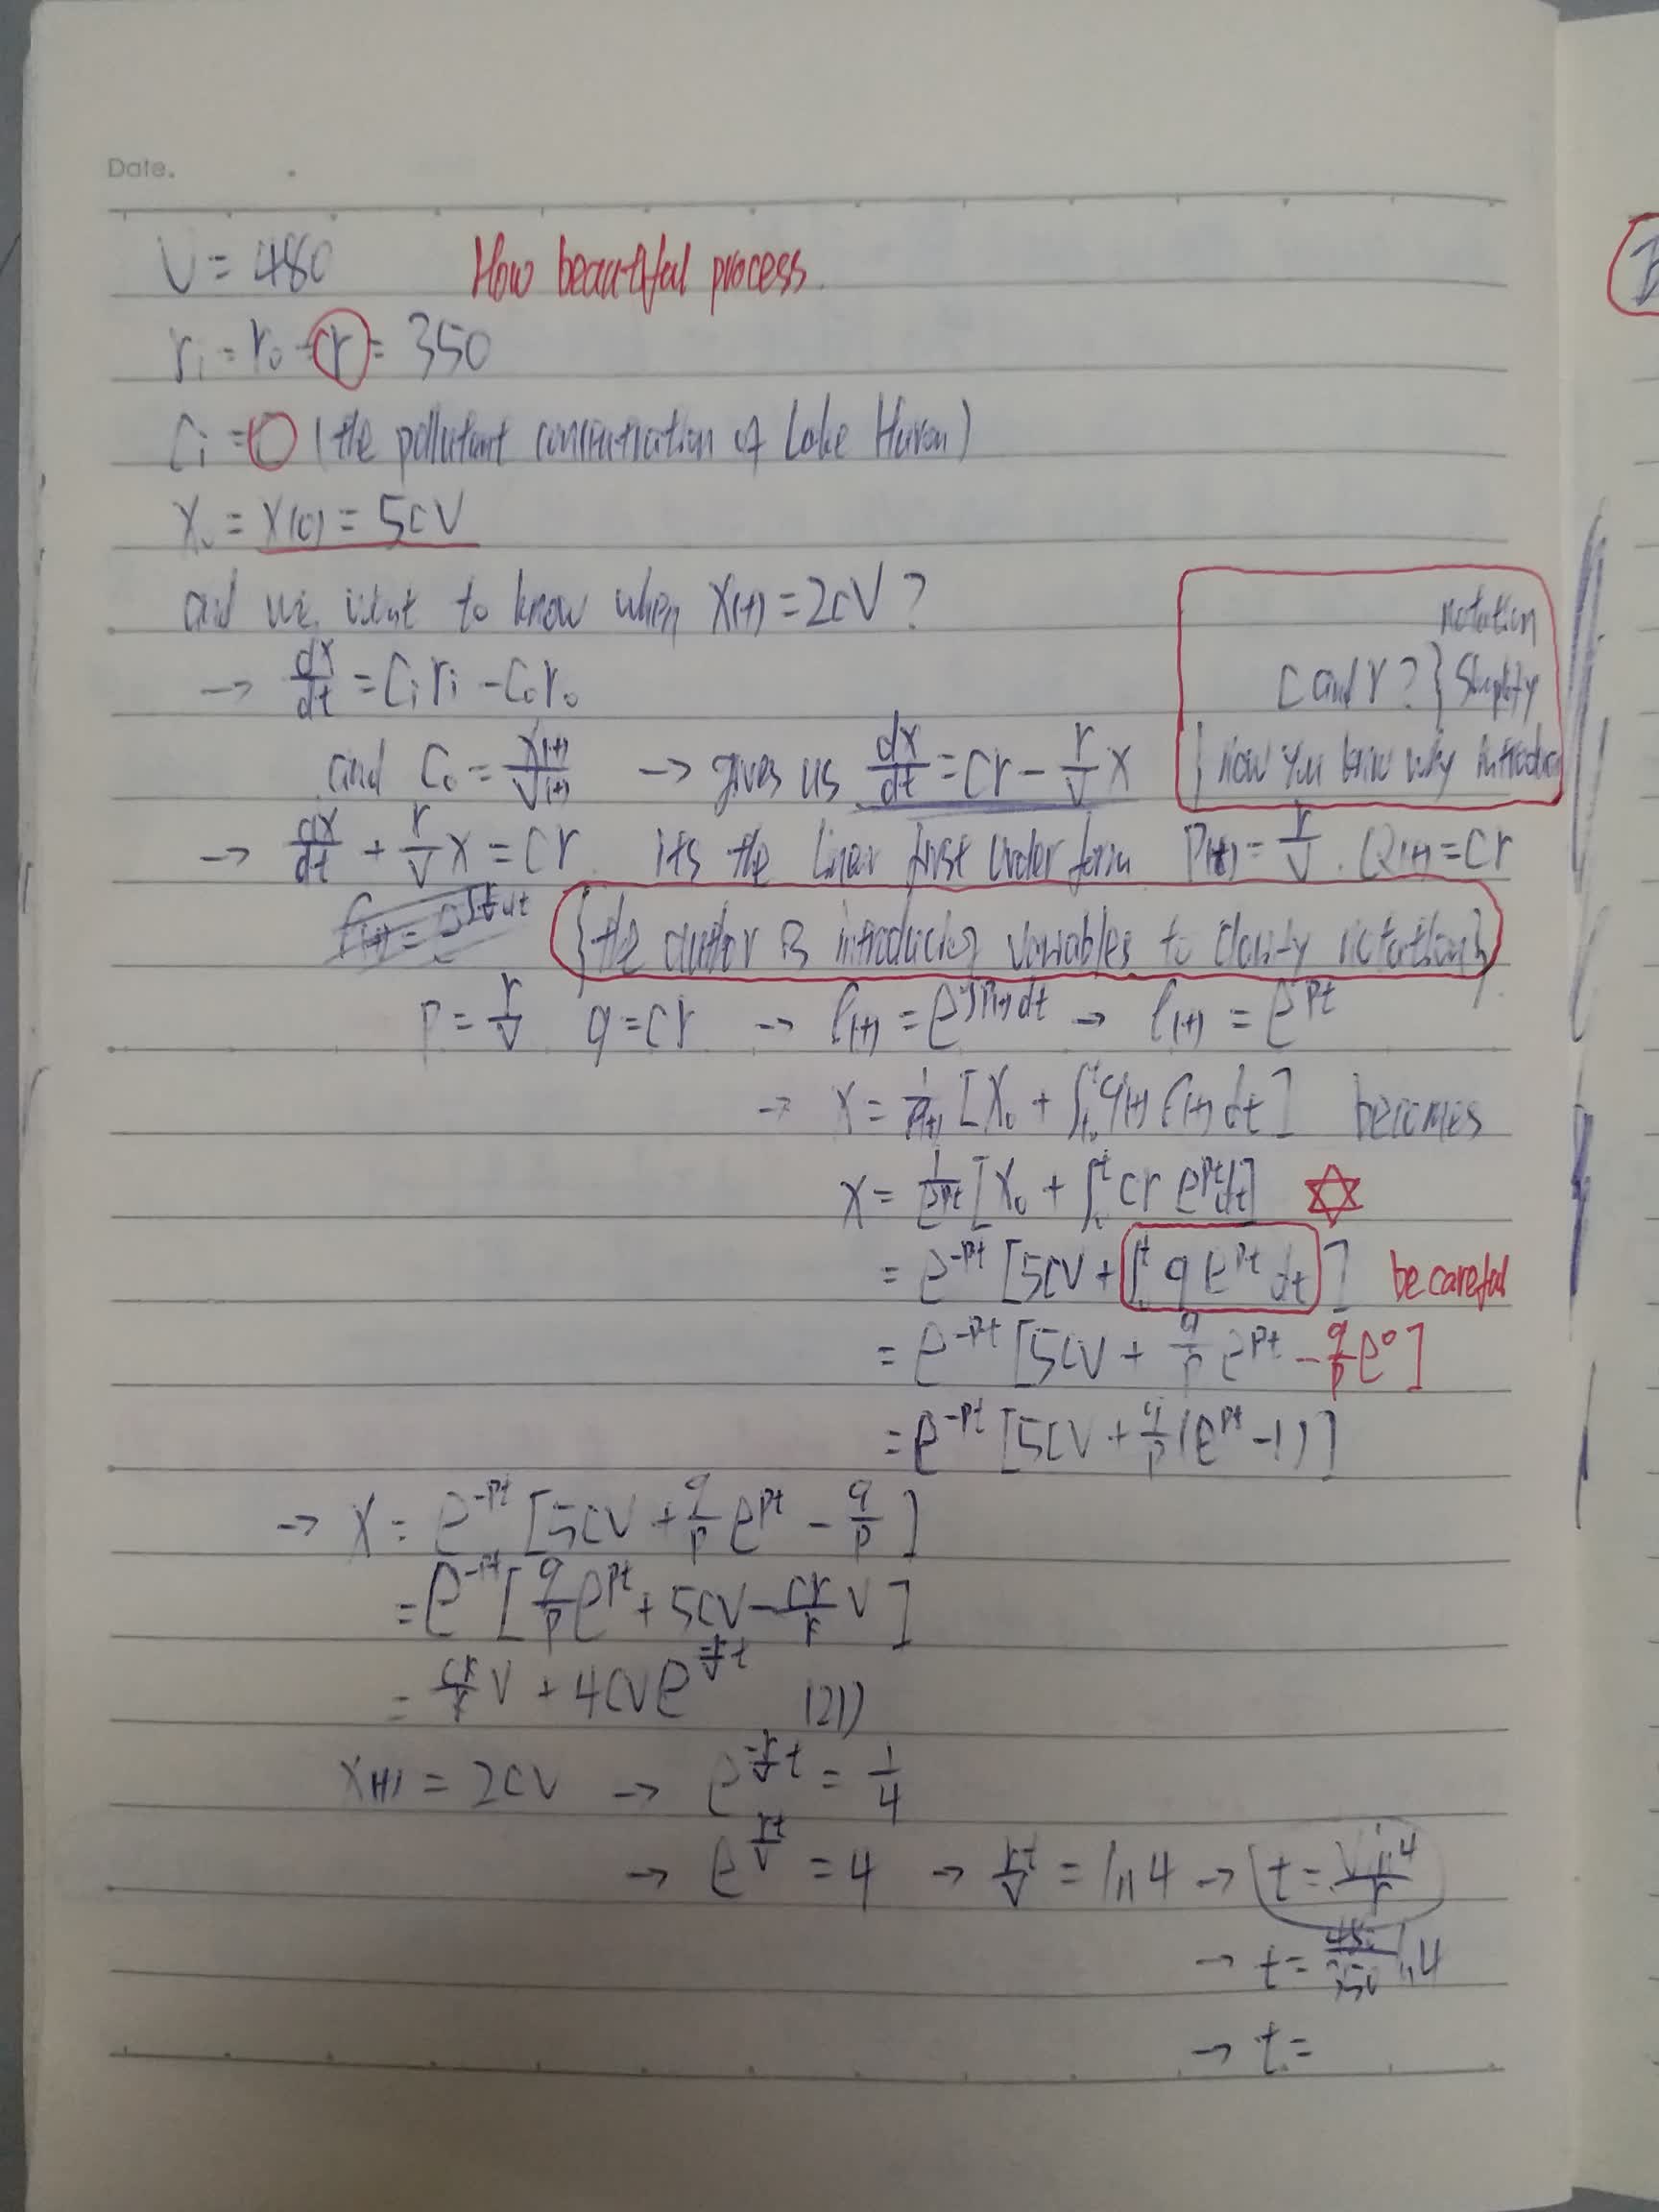 Date.
V = 480 How beautiful process.
ri = ro = r = 350
Ci = C (the pollutant concentration of Lake Huron)
X₀ = X(0) = 5CV
and we want to know when X(t) = 2CV?
→ dx/dt = Ciri - Coro
notation
C and r? } Simplify
and Co = X(t)/V(t) → gives us dx/dt = Cr - r/V X
{ now you know why introduce
→ dx/dt + r/V X = Cr. its the linear first order form P(t) = r/V. Q(t) = Cr
{the author is introducing variables to clarify notation}
P = r/V q = Cr → ρ(t) = e^∫P(t)dt → ρ(t) = e^Pt
→ X = 1/ρ(t) [X₀ + ∫q(t) ρ(t) dt] becomes
X = 1/e^Pt [X₀ + ∫₀^t Cr e^Pt dt]
= e^-Pt [5CV + ∫₀^t q e^Pt dt] be careful
= e^-Pt [5CV + q/P e^Pt - q/P e⁰]
= e^-Pt [5CV + q/P (e^Pt - 1)]
→ X = e^-Pt [5CV + q/P e^Pt - q/P]
= e^-Pt [q/P e^Pt + 5CV - Cr/r V]
= Cr/r V + 4CV e^-r/V t (21)
X(t) = 2CV → e^-r/V t = 1/4
→ e^rt/V = 4 → rt/V = ln 4 → t = V ln 4/r
→ t = 480/350 ln 4
→ t =